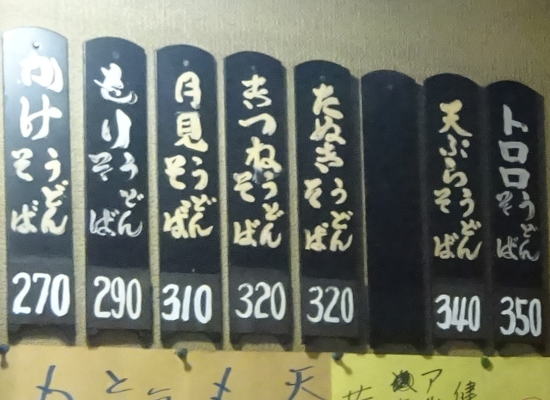 かけ
そば うどん
270
もり
そば うどん
290
月見
そば うどん
310
きつね
そば うどん
320
たぬき
そば うどん
320
天ぷら
そば うどん
340
トロロ
そば うどん
350